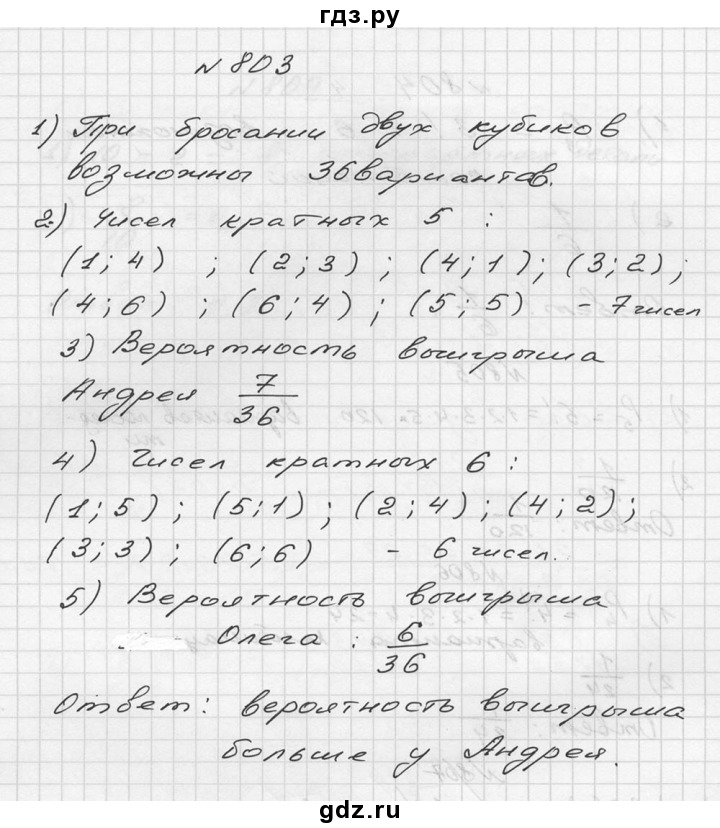 гдз.ру
№ 803
1) При бросании двух кубиков
возможны 36 вариантов.
2) Чисел кратных 5 :
(1; 4) ; (2; 3) ; (4; 1) ; (3; 2) ;
(4; 6) ; (6; 4) ; (5; 5) - 7 чисел
3) Вероятность выигрыша
Андрея 7/36
4) Чисел кратных 6 :
(1; 5) ; (5; 1) ; (2; 4) ; (4; 2) ;
(3; 3) ; (6; 6) - 6 чисел.
5) Вероятность выигрыша
Олега : 6/36
Ответ: вероятность выигрыша
больше у Андрея.
gdz.ru